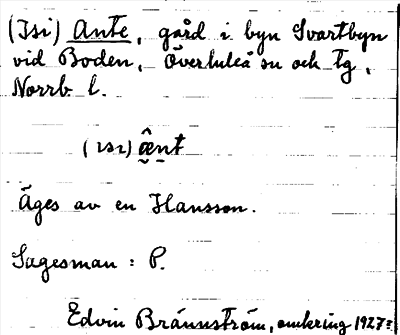 (Isi) Ante, gård i byn Svartbyn
vid Boden, Överluleå sn och tg,
Norrb l.
(ısı) æ̂nt
Äges av en Hansson.
Sagesman: P.
Edvin Brännström, omkring 1927.